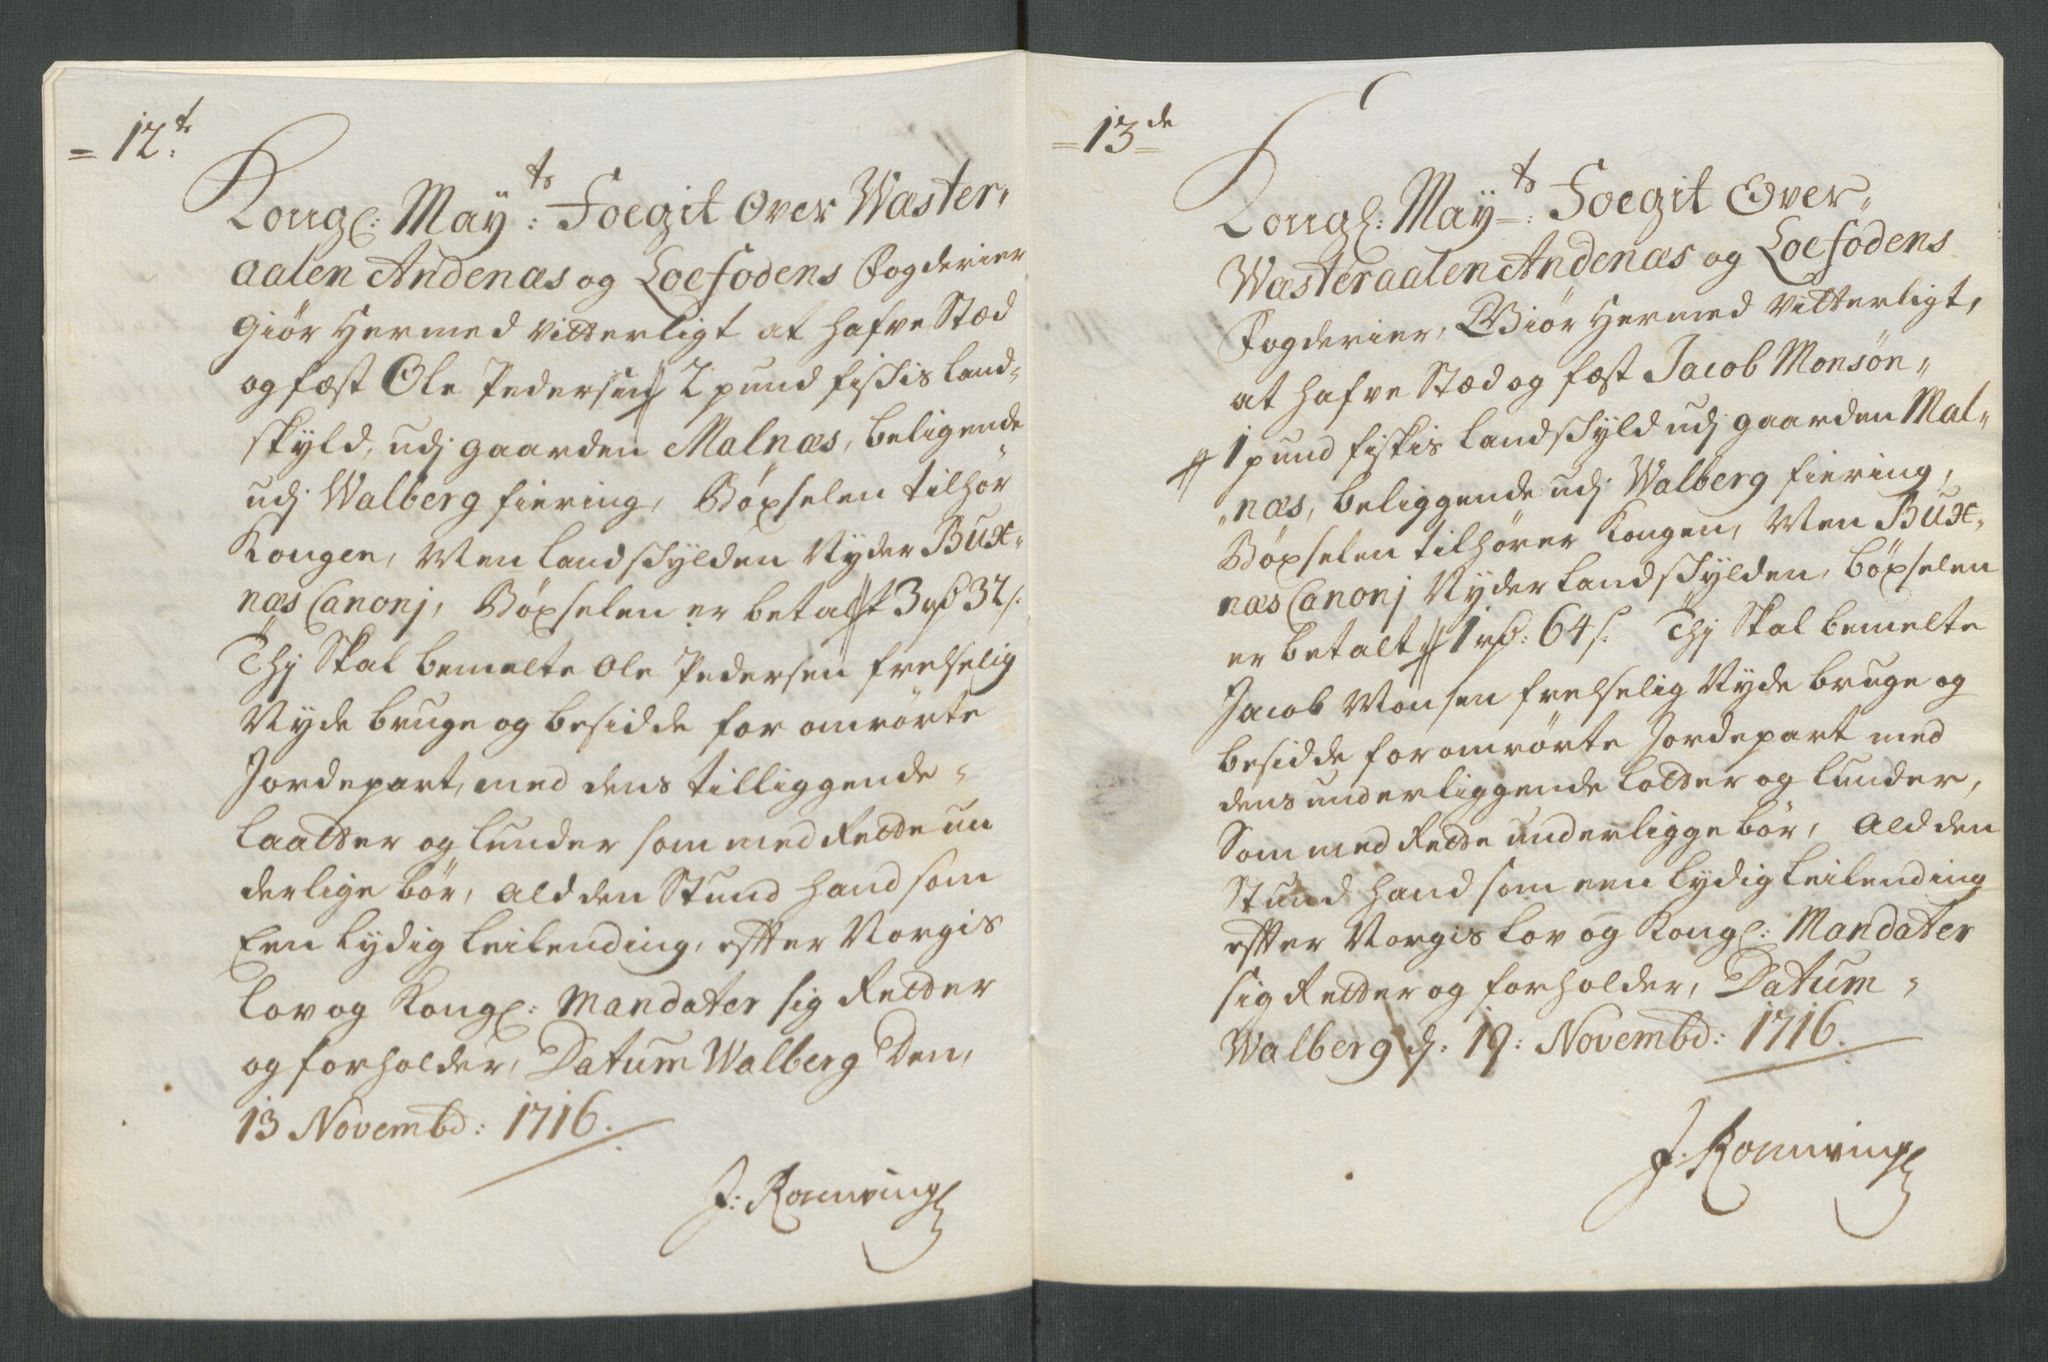 = 12.te
Kongl: May:ts Foegit Over Wæster-
aalen Andenæs og Loefodens Fogderier
Giör Hermed Vitterligt at hafve Stæd
og fæst Ole Pedersen 2 pund fiskis land-
skyld, udj gaarden Malnæs, beligende
udj Walberg fiering, Böxselen tilhör
Kongen, Men landskylden Nyder Bux-
næs Canonj, Böxselen er betalt 3 rd 32 s.
Thj Skal bemelte Ole Pedersen frelselig
Nyde bruge og besidde for omrörte
Jordepart, med dens tilliggende-
laatter og lunder som med Rette un
derlige bör, ald den Stund hand som
Een lydig leilending, efter Norgis
lov og Kongl: Mandater sig Retter
og forholder, Datum Walberg Den,
13 Novembd: 1716.
J: Romving
= 13de
Kongl: May:ts Foegit Over-
Wæsteraalen Andenæs og Loefodens
Fogderier, Giör Hermed Vitterligt,
at hafve Stæd og fæst Jacob Monsön-
1 pund fiskis landskyld udj gaarden Mal-
næs, beliggende udj Walberg fiering,
Böxselen tilhörer Kongen, Men Bux-
næs Canonj Nyder landskylden, böxselen
er betalt 1 rd: 64 s. Thj Skal bemelte
Jacob Monsen frelselig Nyde bruge og
besidde for omrörte Jordepart med
dens underliggende lotter og lunder,
Som med Rette underligge bör, Ald den
Stund hand som een lydig leilending
efter Norgis lov og Kongl: Mandater
sig Retter og forholder, Datum-
Walberg d: 19: Novembd: 1716.
J. Romving